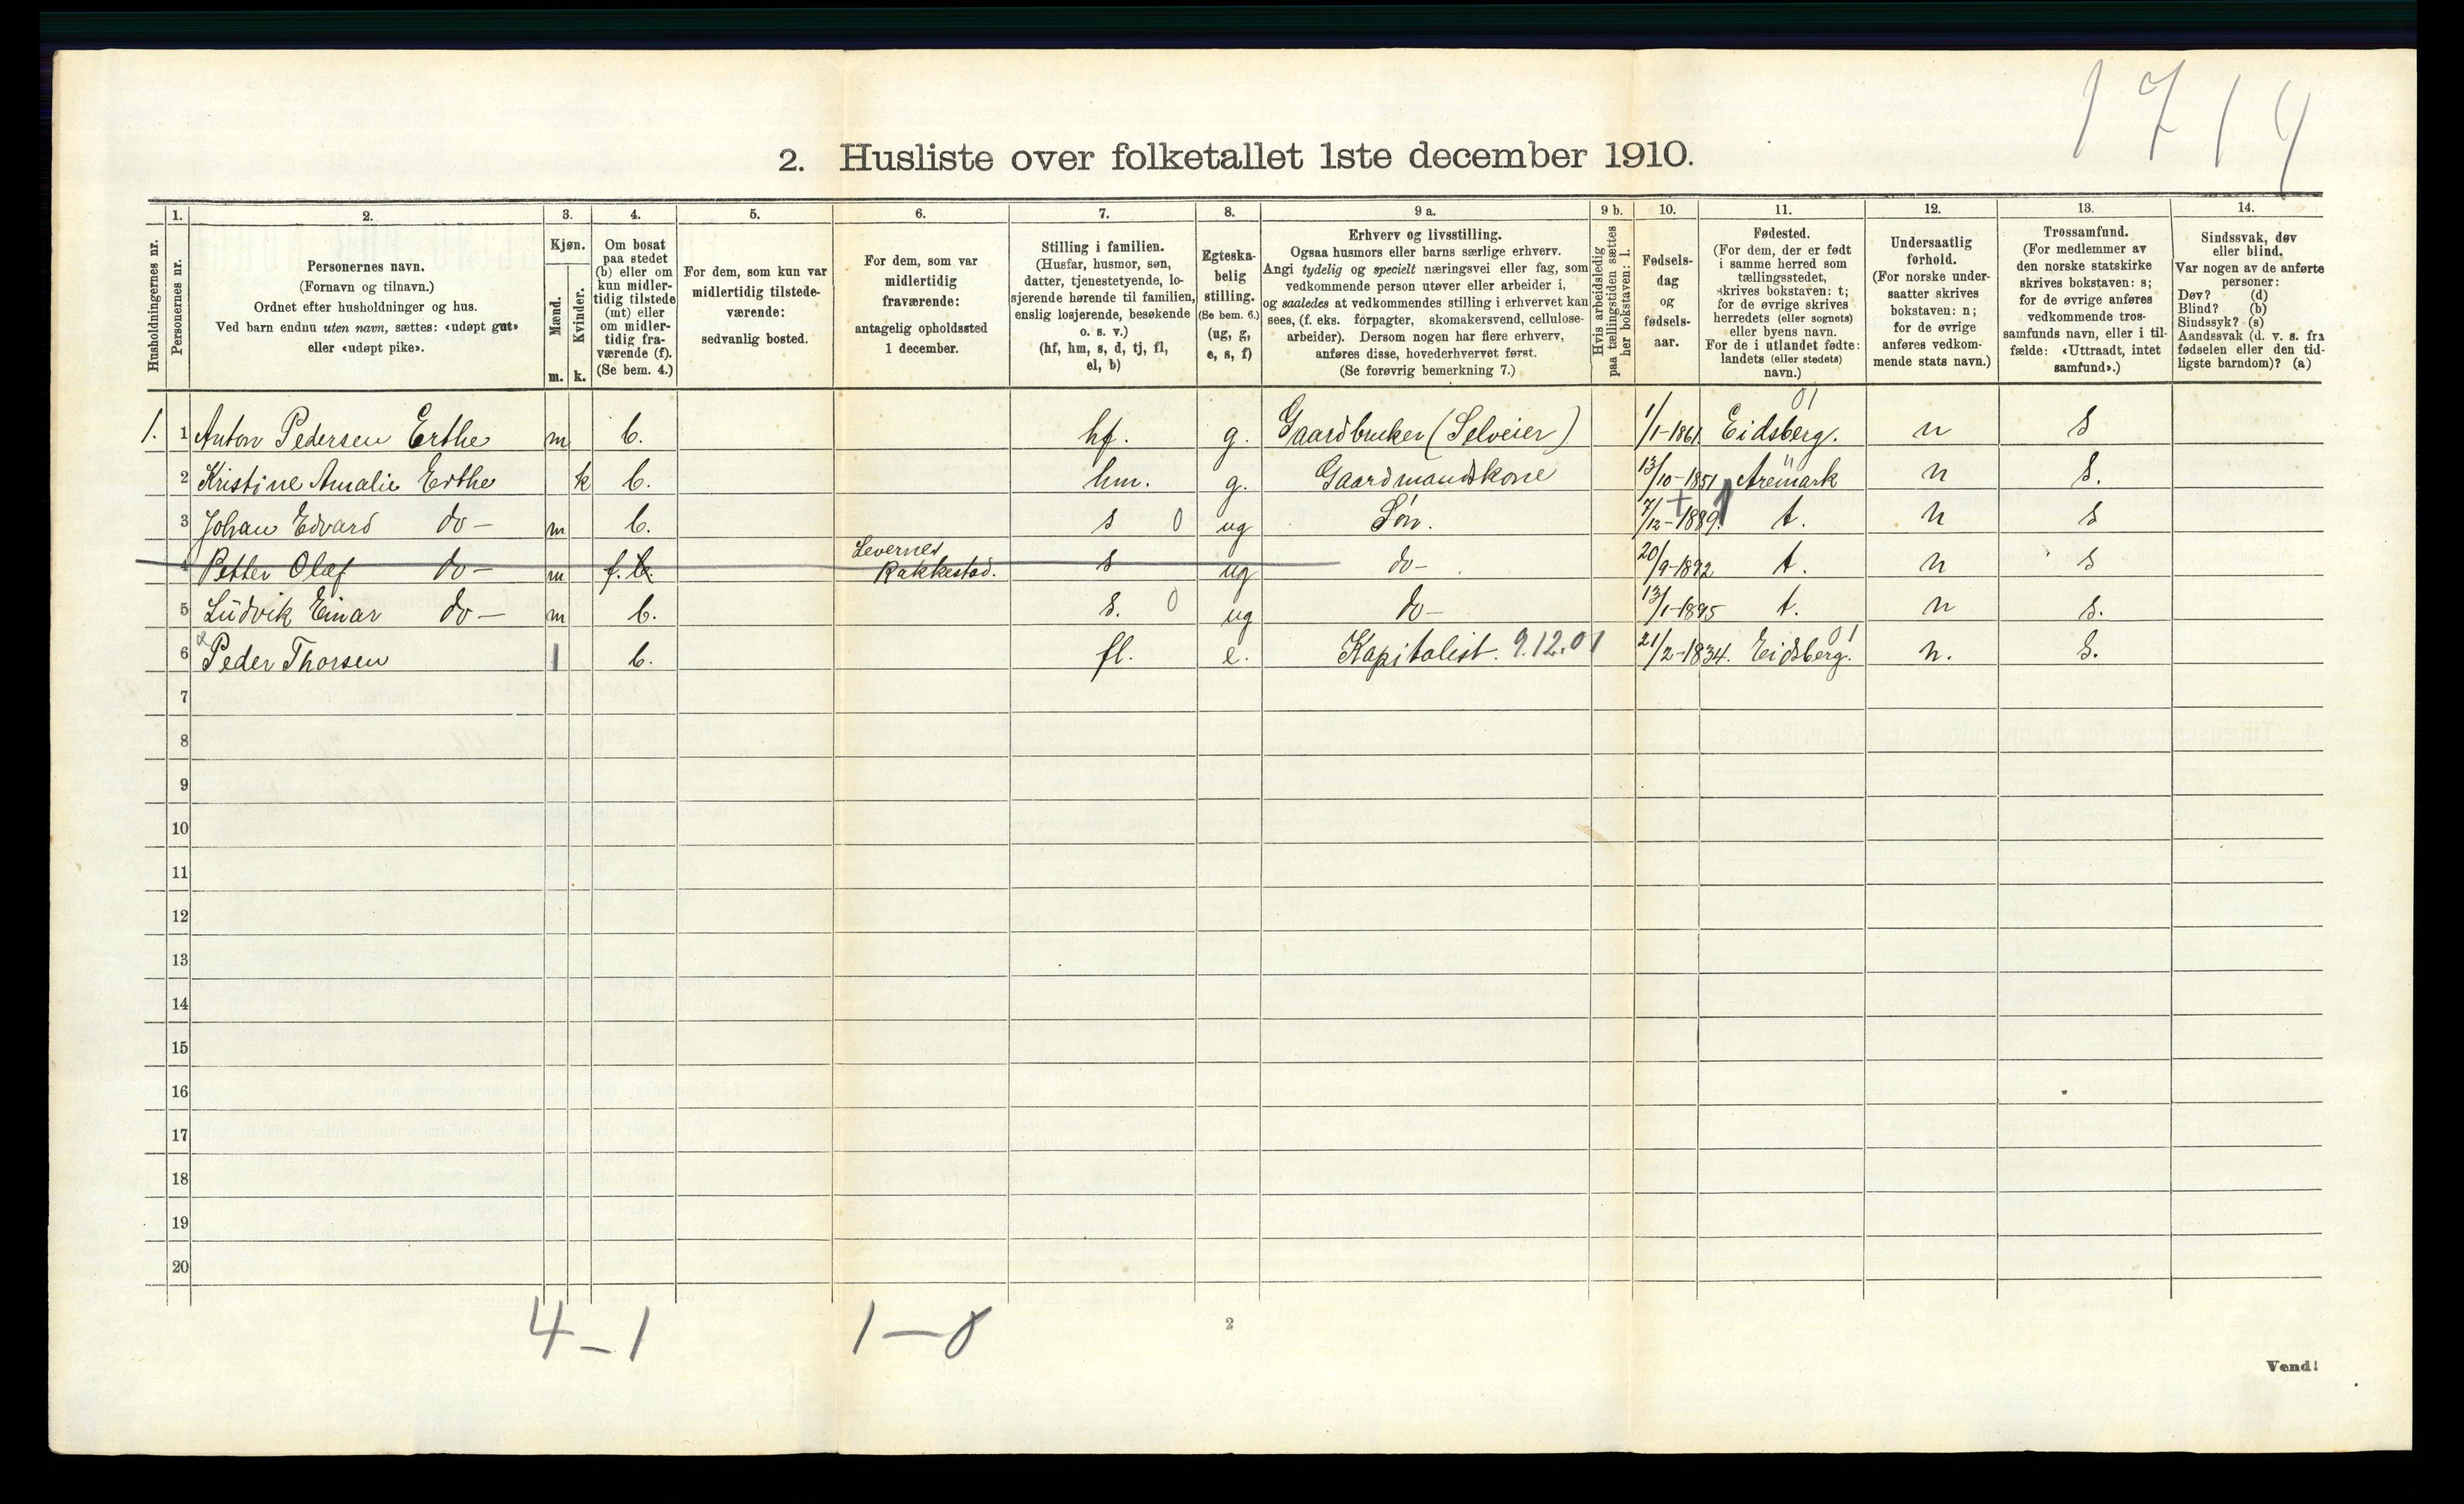 1714
2. Husliste over folketallet 1ste december 1910.
Husholdningernes nr.
1.
Personernes nr.
2.
Personernes navn.
(Fornavn og tilnavn.)
Ordnet efter husholdninger og hus.
Ved barn endnu uten navn, sættes: «udøpt gut»
eller «udøpt pike».
3.
Kjøn.
Mænd.
Kvinder.
m. k.
4.
Om bosat
paa stedet
(b) eller om
kun midler-
tidig tilstede
(mt) eller
om midler-
tidig fra-
værende (f).
(Se bem. 4.)
5.
For dem, som kun var
midlertidig tilstede-
værende:
sedvanlig bosted.
6.
For dem, som var
midlertidig
fraværende:
antagelig opholdssted
1 december.
7.
Stilling i familien.
(Husfar, husmor, søn,
datter, tjenestetyende, lo-
sjerende hørende til familien,
enslig losjerende, besøkende
o. s. v.)
(hf, hm, s, d, tj, fl,
el, b)
8.
Egteska-
belig
stilling.
(Se bem. 6.)
(ug, g,
e, s, f)
9 a.
Erhverv og livsstilling.
Ogsaa husmors eller barns særlige erhverv.
Angi tydelig og specielt næringsvei eller fag, som
vedkommende person utøver eller arbeider i,
og saaledes at vedkommendes stilling i erhvervet kan
sees, (f. eks. forpagter, skomakersvend, cellulose-
arbeider). Dersom nogen har flere erhverv,
anføres disse, hovederhvervet først.
(Se forøvrig bemerkning 7.)
9 b.
Hvis arbeidsledig
paa tællingstiden sættes
her bokstaven: l.
10.
Fødsels-
dag
og
fødsels-
aar.
11.
Fødested.
(For dem, der er født
i samme herred som
tællingsstedet,
skrives bokstaven: t;
for de øvrige skrives
herredets (eller sognets)
eller byens navn.
For de i utlandet fødte:
landets (eller stedets)
navn.)
12.
Undersaatlig
forhold.
(For norske under-
saatter skrives
bokstaven: n;
for de øvrige
anføres vedkom-
mende stats navn.)
13.
Trossamfund.
(For medlemmer av
den norske statskirke
skrives bokstaven: s;
for de øvrige anføres
vedkommende tros-
samfunds navn, eller i til-
fælde: «Uttraadt, intet
samfund».)
14.
Sindssvak, døv
eller blind.
Var nogen av de anførte
personer:
Døv? (d)
Blind? (b)
Sindssyk? (s)
Aandssvak (d. v. s. fra
fødselen eller den tid-
ligste barndom)? (a)
01
1. 1 Anton Pedersen Erthe m b. hf. g. Gaardbruker (Selveier) 1/1-1861 Eidsberg. n s
2 Kristine Amalie Erthe k b. hm. g. Gaardmandskone 13/10-1851 Aremark n s.
3 Johan Edvard do- m b. s 0 ug Søn. 7/12-1889. t. n s
4 Petter Olaf do- m f. b. Levernes Rakkestad. s ug do- 20/9-1892 t. n s
5 Ludvik Einar do- m b. s. 0 ug do- 13/1-1895 t. n s.
6 Peder Thorsen 1 b. fl. e. Kapitalist. 9.12.01 21/2-1834. Eidsberg. 01 n. s.
7
8
9
10
11
12
13
14
15
16
17
18
19
20
4-1 1-0
2
Vend!